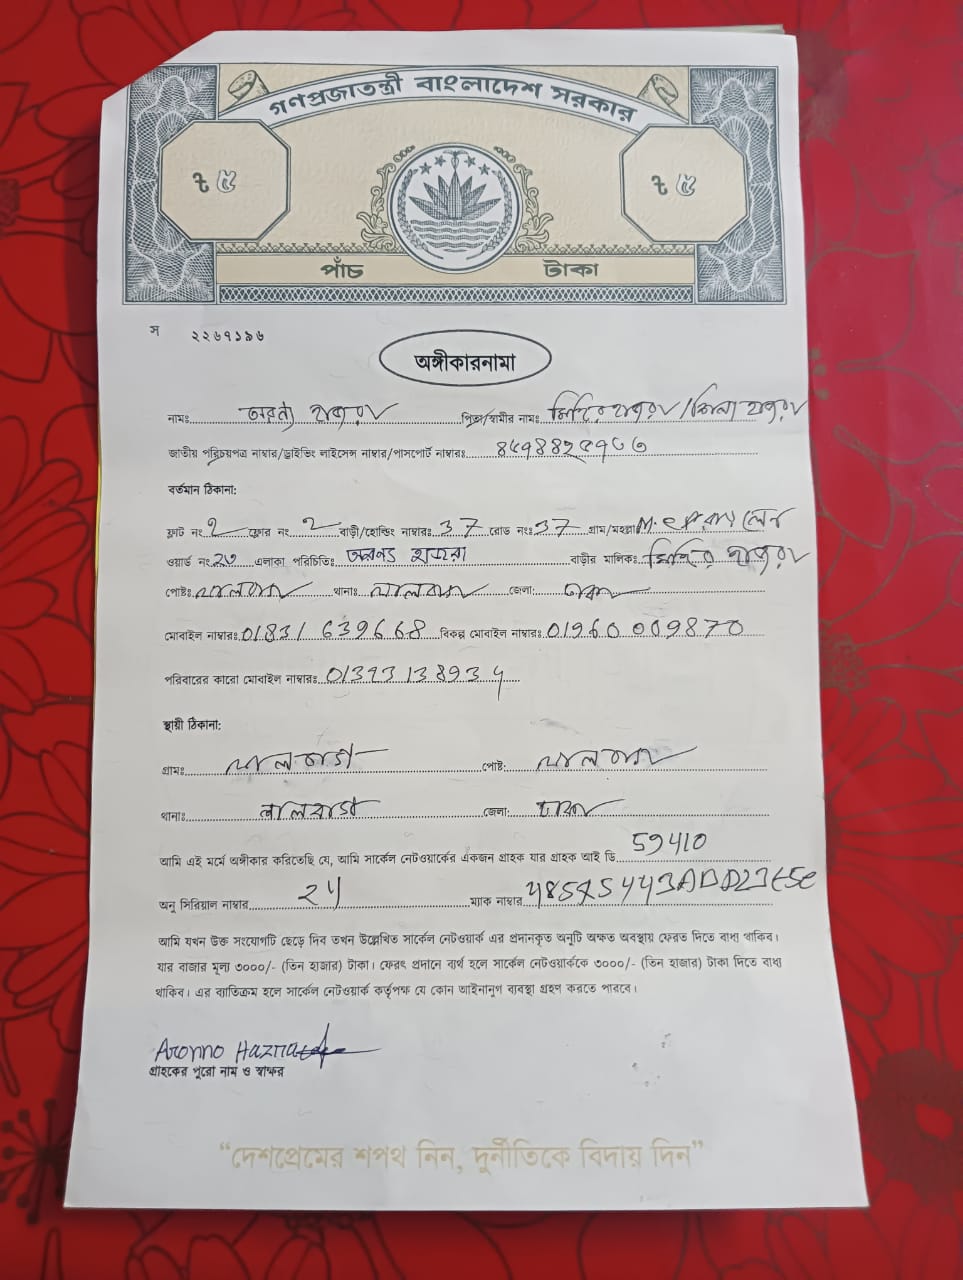 গণপ্রজাতন্ত্রী বাংলাদেশ সরকার
৳ ৫ ৳ ৫
পাঁচ টাকা
স ২২৬৭১৯৬
অঙ্গীকারনামা
নামঃ পিতা/স্বামীর নামঃ
জাতীয় পরিচয়পত্র নাম্বার/ড্রাইভিং লাইসেন্স নাম্বার/পাসপোর্ট নাম্বারঃ
বর্তমান ঠিকানা:
ফ্লাট নং 2 ফ্লোর নং 2 বাড়ী/হোল্ডিং নাম্বারঃ 37 রোড নংঃ 37 গ্রাম/মহল্লা লেন
ওয়ার্ড নং এলাকা পরিচিতিঃ বাড়ীর মালিকঃ
পোষ্টঃ লালবাগ থানাঃ লালবাগ জেলা: ঢাকা
মোবাইল নাম্বারঃ 01831 639668 বিকল্প মোবাইল নাম্বারঃ 01960 009870
পরিবারের কারো মোবাইল নাম্বারঃ
স্থায়ী ঠিকানা:
গ্রামঃ লালবাগ পোষ্ট: লালবাগ
থানাঃ লালবাগ জেলা: ঢাকা
আমি এই মর্মে অঙ্গীকার করিতেছি যে, আমি সার্কেল নেটওয়ার্কের একজন গ্রাহক যার গ্রাহক আই ডি 59410
অনু সিরিয়াল নাম্বার ম্যাক নাম্বার
আমি যখন উক্ত সংযোগটি ছেড়ে দিব তখন উল্লেখিত সার্কেল নেটওয়ার্ক এর প্রদানকৃত অনুটি অক্ষত অবস্থায় ফেরত দিতে বাধ্য থাকিব।
যার বাজার মূল্য ৩০০০/- (তিন হাজার) টাকা। ফেরৎ প্রদানে ব্যর্থ হলে সার্কেল নেটওয়ার্ককে ৩০০০/- (তিন হাজার) টাকা দিতে বাধ্য
থাকিব। এর ব্যতিক্রম হলে সার্কেল নেটওয়ার্ক কর্তৃপক্ষ যে কোন আইনানুগ ব্যবস্থা গ্রহণ করতে পারবে।
Aronno Hazra
গ্রাহকের পুরো নাম ও স্বাক্ষর
“দেশপ্রেমের শপথ নিন, দুর্নীতিকে বিদায় দিন”